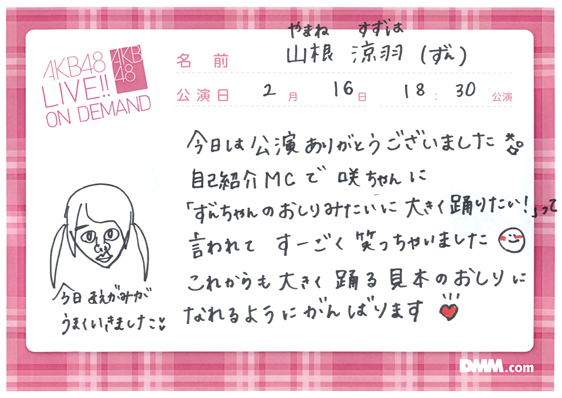 AKB48
LIVE!!
ON DEMAND
AKB
48
やまね すずは
名前 山根 涼羽 (ずん)
公演日 2月 16日 18:30 公演
今日は公演ありがとうございました
自己紹介MCで 咲ちゃんに
「ずんちゃんのおしりみたいに 大きく踊りたい!」って
言われて すーごく笑っちゃいました
これからも大きく踊る見本のおしりに
なれるようにがんばります
今日まえがみが
うまくいきました
DMM.com